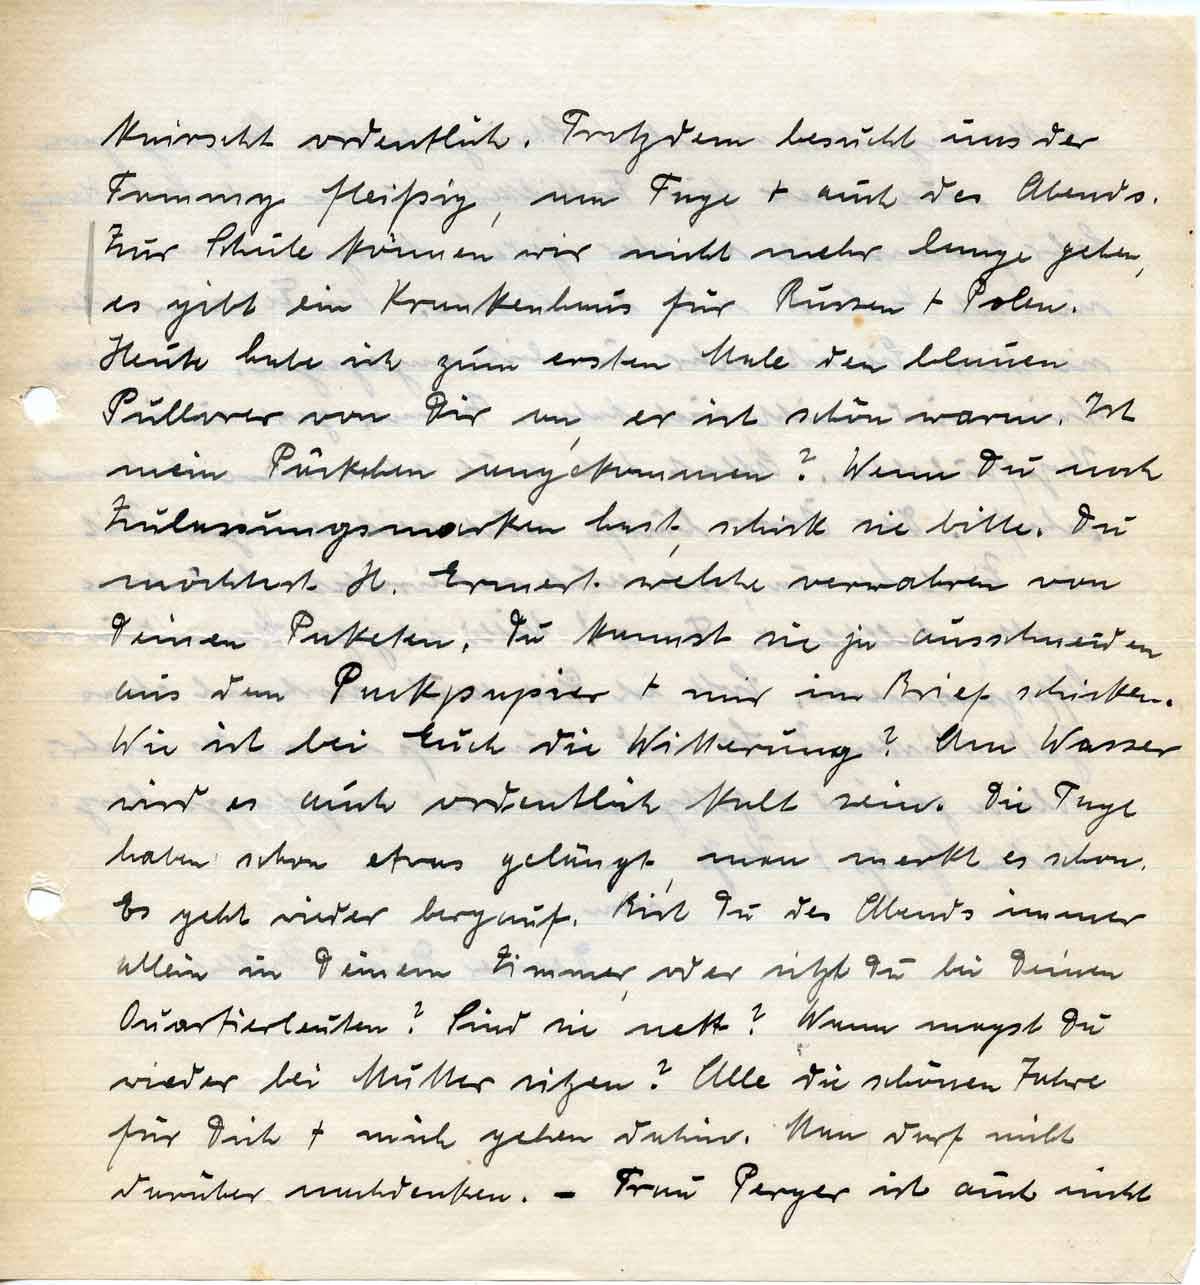 knirscht ordentlich. Trotzdem besucht uns der
Tommy fleißig, am Tage + auch des Abends.
Zur Schule können wir nicht mehr lange gehen,
es gibt ein Krankenhaus für Russen + Polen.
Heute habe ich zum ersten Male den blauen
Pullover von Dir an, er ist schön warm. Ist
mein Päckchen angekommen? Wenn Du noch
Zulassungsmarken hast, schick sie bitte. Du
möchtest H. Ermert welche verwahren von
Deinen Paketen. Du kannst sie ja ausschneiden
aus dem Packpapier + mir im Brief schicken.
Wie ist bei Euch die Witterung? Am Wasser
wird es auch ordentlich kalt sein. Die Tage
haben schon etwas gelängt, man merkt es schon.
Es geht wieder bergauf. Bist Du des Abends immer
allein in Deinem Zimmer, oder sitzt Du bei Deinen
Quartierleuten? Sind sie nett? Wann magst Du
wieder bei Mutter sitzen? Alle die schönen Jahre
für Dich + mich gehen dahin. Man darf nicht
darüber nachdenken. – Frau Perger ist auch nicht